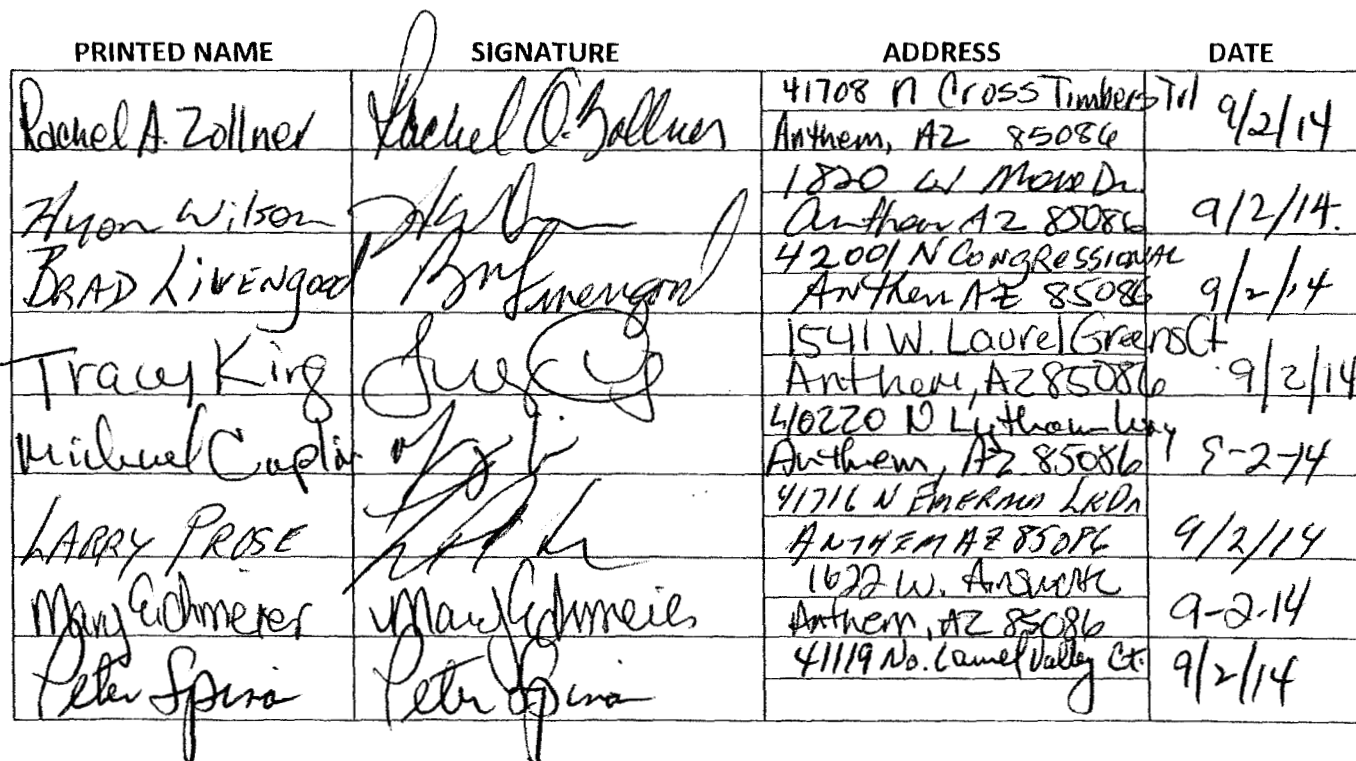 PRINTED NAME SIGNATURE ADDRESS DATE
Rachel A. Zollner Rachel A. Zollner 41708 N Cross Timbers Trl 9/2/14
Anthem, AZ 85086
Hyon Wilson 1820 W Dr 9/2/14.
Anthem AZ 85086
BRAD LIVENGOOD Livengood 42001 N CONGRESSIONAL 9/2/14
Anthem AZ 85086
Tracy King 1541 W. Laurel Greens Ct 9/2/14
Anthem, AZ 85086
Michael 40220 N Way 9-2-14
Anthem, AZ 85086
LARRY PROSE 41716 N EMERALD LK DR 9/2/14
ANTHEM AZ 85086
Mary Eichmeier Mary Eichmeier 1622 W. 9-2-14
Anthem, AZ 85086
Peter Spina Peter Spina 41119 No. Laurel Valley Ct. 9/2/14